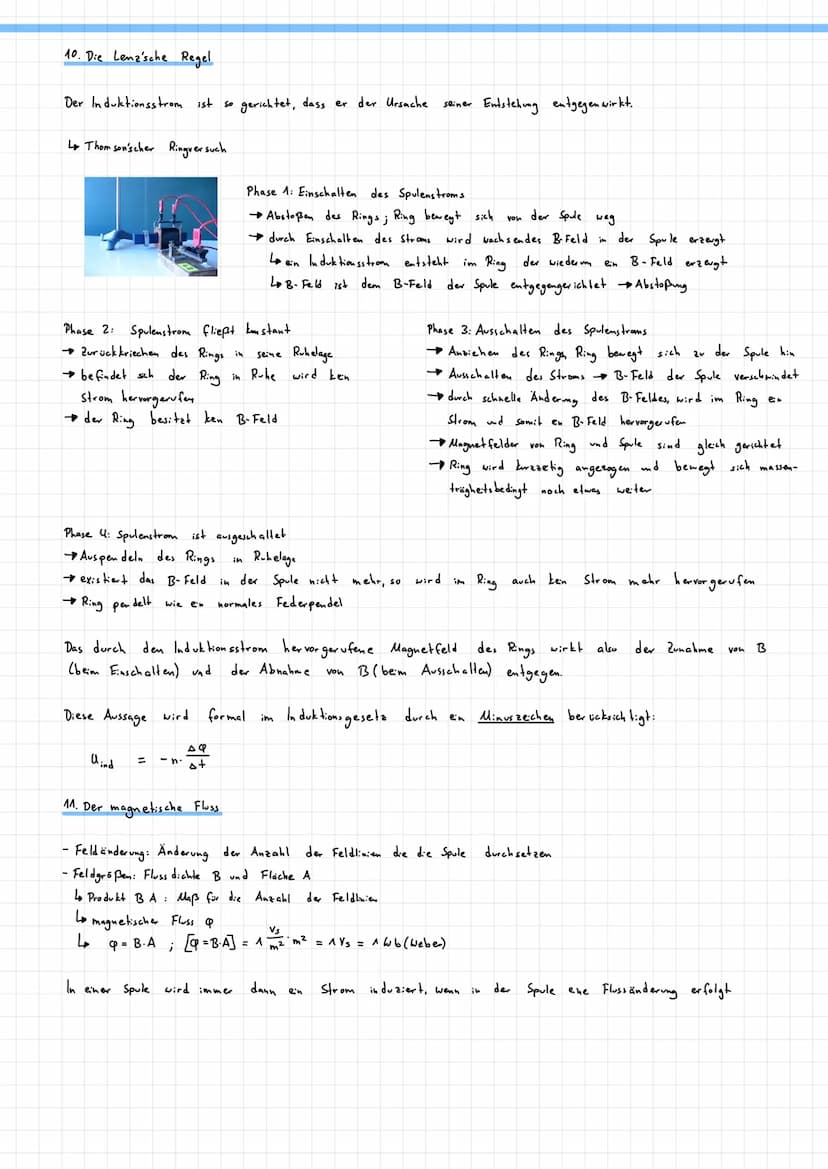 10. Die Lenz'sche Regel
Der Induktionsstrom ist so gerichtet, dass er der Ursache seiner Entstehung entgegenwirkt.
↳ Thomson'scher Ringversuch
Phase 1: Einschalten des Spulenstroms
→ Abstoßen des Rings; Ring bewegt sich von der Spule weg
→ durch Einschalten des Stroms wird wachsendes B-Feld in der Spule erzeugt
↳ ein Induktionsstrom entsteht im Ring der wiederum ein B-Feld erzeugt
↳ B-Feld ist dem B-Feld der Spule entgegengerichtet → Abstoßung
Phase 2: Spulenstrom fließt konstant
→ Zurückkriechen des Rings in seine Ruhelage
→ befindet sich der Ring in Ruhe wird kein
Strom hervorgerufen
→ der Ring besitzt kein B-Feld
Phase 3: Ausschalten des Spulenstroms
→ Anziehen des Rings, Ring bewegt sich zu der Spule hin
→ Ausschalten des Stroms → B-Feld der Spule verschwindet
→ durch schnelle Änderung des B-Feldes, wird im Ring ein
Strom und somit ein B-Feld hervorgerufen
→ Magnetfelder von Ring und Spule sind gleich gerichtet
→ Ring wird kurzzeitig angezogen und bewegt sich massen-
trägheitsbedingt noch etwas weiter
Phase 4: Spulenstrom ist ausgeschaltet
→ Auspendeln des Rings in Ruhelage
→ existiert das B-Feld in der Spule nicht mehr, so wird im Ring auch kein Strom mehr hervorgerufen
→ Ring pendelt wie ein normales Federpendel
Das durch den Induktionsstrom hervorgerufene Magnetfeld des Rings wirkt also der Zunahme von B
(beim Einschalten) und der Abnahme von B (beim Ausschalten) entgegen.
Diese Aussage wird formal im Induktionsgesetz durch ein Minuszeichen berücksichtigt:
U_ind = -n · Δφ/Δt
11. Der magnetische Fluss
- Feldänderung: Änderung der Anzahl der Feldlinien die die Spule durchsetzen
- Feldgrößen: Flussdichte B und Fläche A
↳ Produkt B A : Maß für die Anzahl der Feldlinien
↳ magnetischer Fluss φ
↳ φ = B·A ; [φ = B·A] = 1 Vs/m² · m² = 1 Vs = 1 Wb (Weber)
In einer Spule wird immer dann ein Strom induziert, wenn in der Spule eine Flussänderung erfolgt